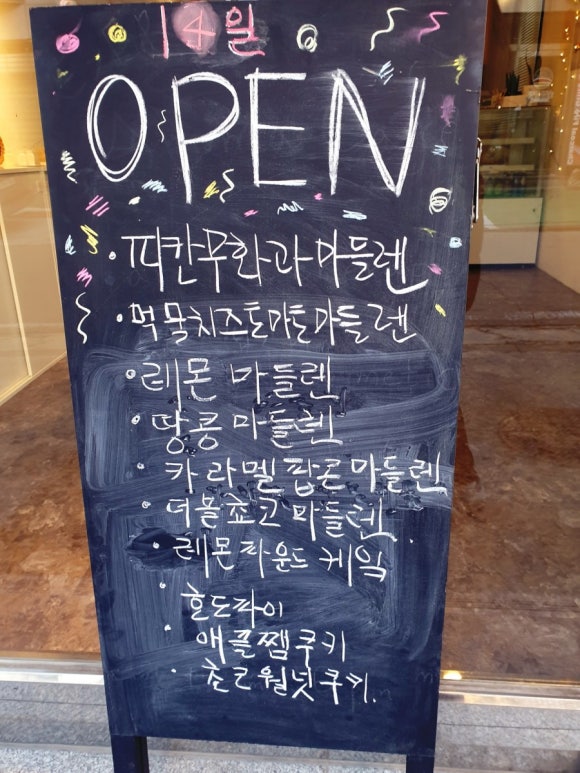 14일
OPEN
· 피칸무화과마들렌
· 먹물치즈토마토마들렌
· 레몬 마들렌
· 땅콩 마들렌
· 카라멜팝콘마들렌
· 더볼쵸코마들렌.
· 레몬파운드 케잌
· 호도파이
· 애플쨈쿠키
· 초코월넛쿠키.